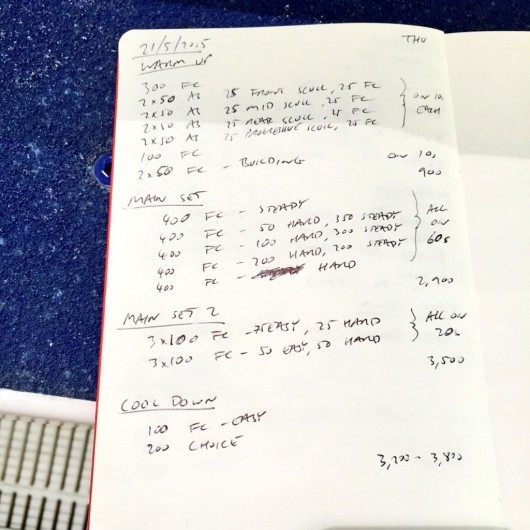 21/5/2015 THU
WARM UP
300 FC
2x50 AS 25 FRONT SCULL, 25 FC
2x50 AS 25 MID SCULL, 25 FC
2x50 AS 25 REAR SCULL, 25 FC
2x50 AS 25 PROGRESSIVE SCULL, 25 FC
ON 10s EACH
100 FC
2x50 FC - BUILDING ON 10s
900
MAIN SET
400 FC - STEADY
400 FC - 50 HARD, 350 STEADY
400 FC - 100 HARD, 300 STEADY
400 FC - 200 HARD, 200 STEADY
400 FC - HARD
ALL ON 60s
2,900
MAIN SET 2
3x100 FC - 75 EASY, 25 HARD
3x100 FC - 50 EASY, 50 HARD
ALL ON 20s
3,500
COOL DOWN
100 FC - EASY
200 CHOICE
3,200 - 3,800